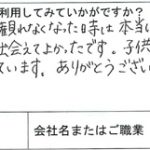 利用してみていかがですか?
観れなくなった時は本当に
出会えてよかったです。子供
ています。ありがとうござい
会社名またはご職業